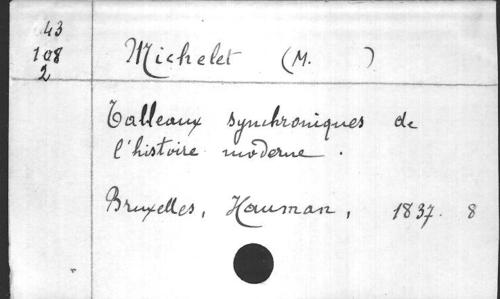 43
108
2
Michelet (M. )
Tableaux synchroniques de
l'histoire moderne.
Bruxelles, Hauman, 1837. 8